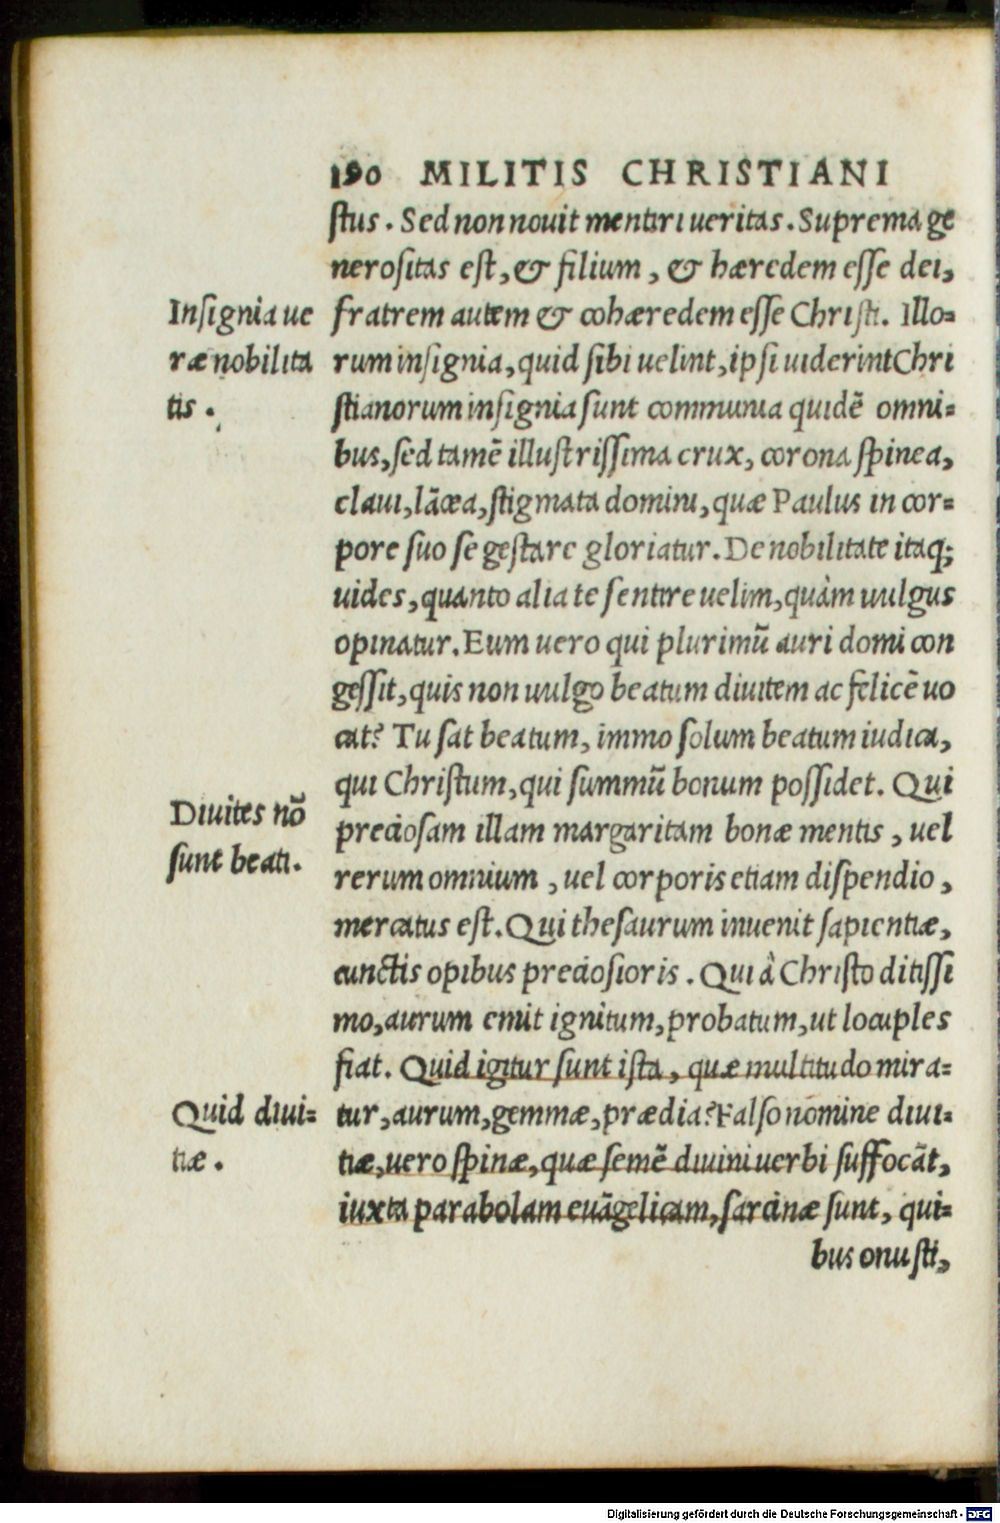 190 MILITIS CHRISTIANI
ſtus. Sed non nouit mentiri ueritas. Suprema ge
neroſitas eſt, & filium, & hæredem eſſe dei,
Inſignia ue
ræ nobilita
tis.
fratrem autem & cohæredem eſſe Chriſti. Illo=
rum inſignia, quid ſibi uelint, ipſi uiderint Chri
ſtianorum inſignia ſunt communia quidē omni=
bus, ſed tamē illuſtriſſima crux, corona ſpinea,
claui, lācea, ſtigmata domini, quæ Paulus in cor=
pore ſuo ſe geſtare gloriatur. De nobilitate itaq;
uides, quanto alia te ſentire uelim, quàm uulgus
opinatur. Eum uero qui plurimū auri domi con
geſſit, quis non uulgo beatum diuitem ac felicē uo
cat? Tu ſat beatum, immo ſolum beatum iudica,
qui Chriſtum, qui ſummū bonum poſſidet. Qui
Diuites nō
ſunt beati.
precioſam illam margaritam bonæ mentis, uel
rerum omnium, uel corporis etiam diſpendio,
mercatus eſt. Qui theſaurum inuenit ſapientiæ,
cunctis opibus precioſioris. Qui à Chriſto ditiſſi
mo, aurum emit ignitum, probatum, ut locuples
fiat. Quid igitur ſunt iſta, quæ multitudo mira=
Quid diui=
tiæ.
tur, aurum, gemmæ, prædia? Falſo nomine diui=
tiæ, uero ſpinæ, quæ ſemē diuini uerbi ſuffocāt,
iuxta parabolam euāgelicam, ſarcinæ ſunt, qui=
bus onuſti,
Digitalisierung gefördert durch die Deutsche Forschungsgemeinschaft - DFG